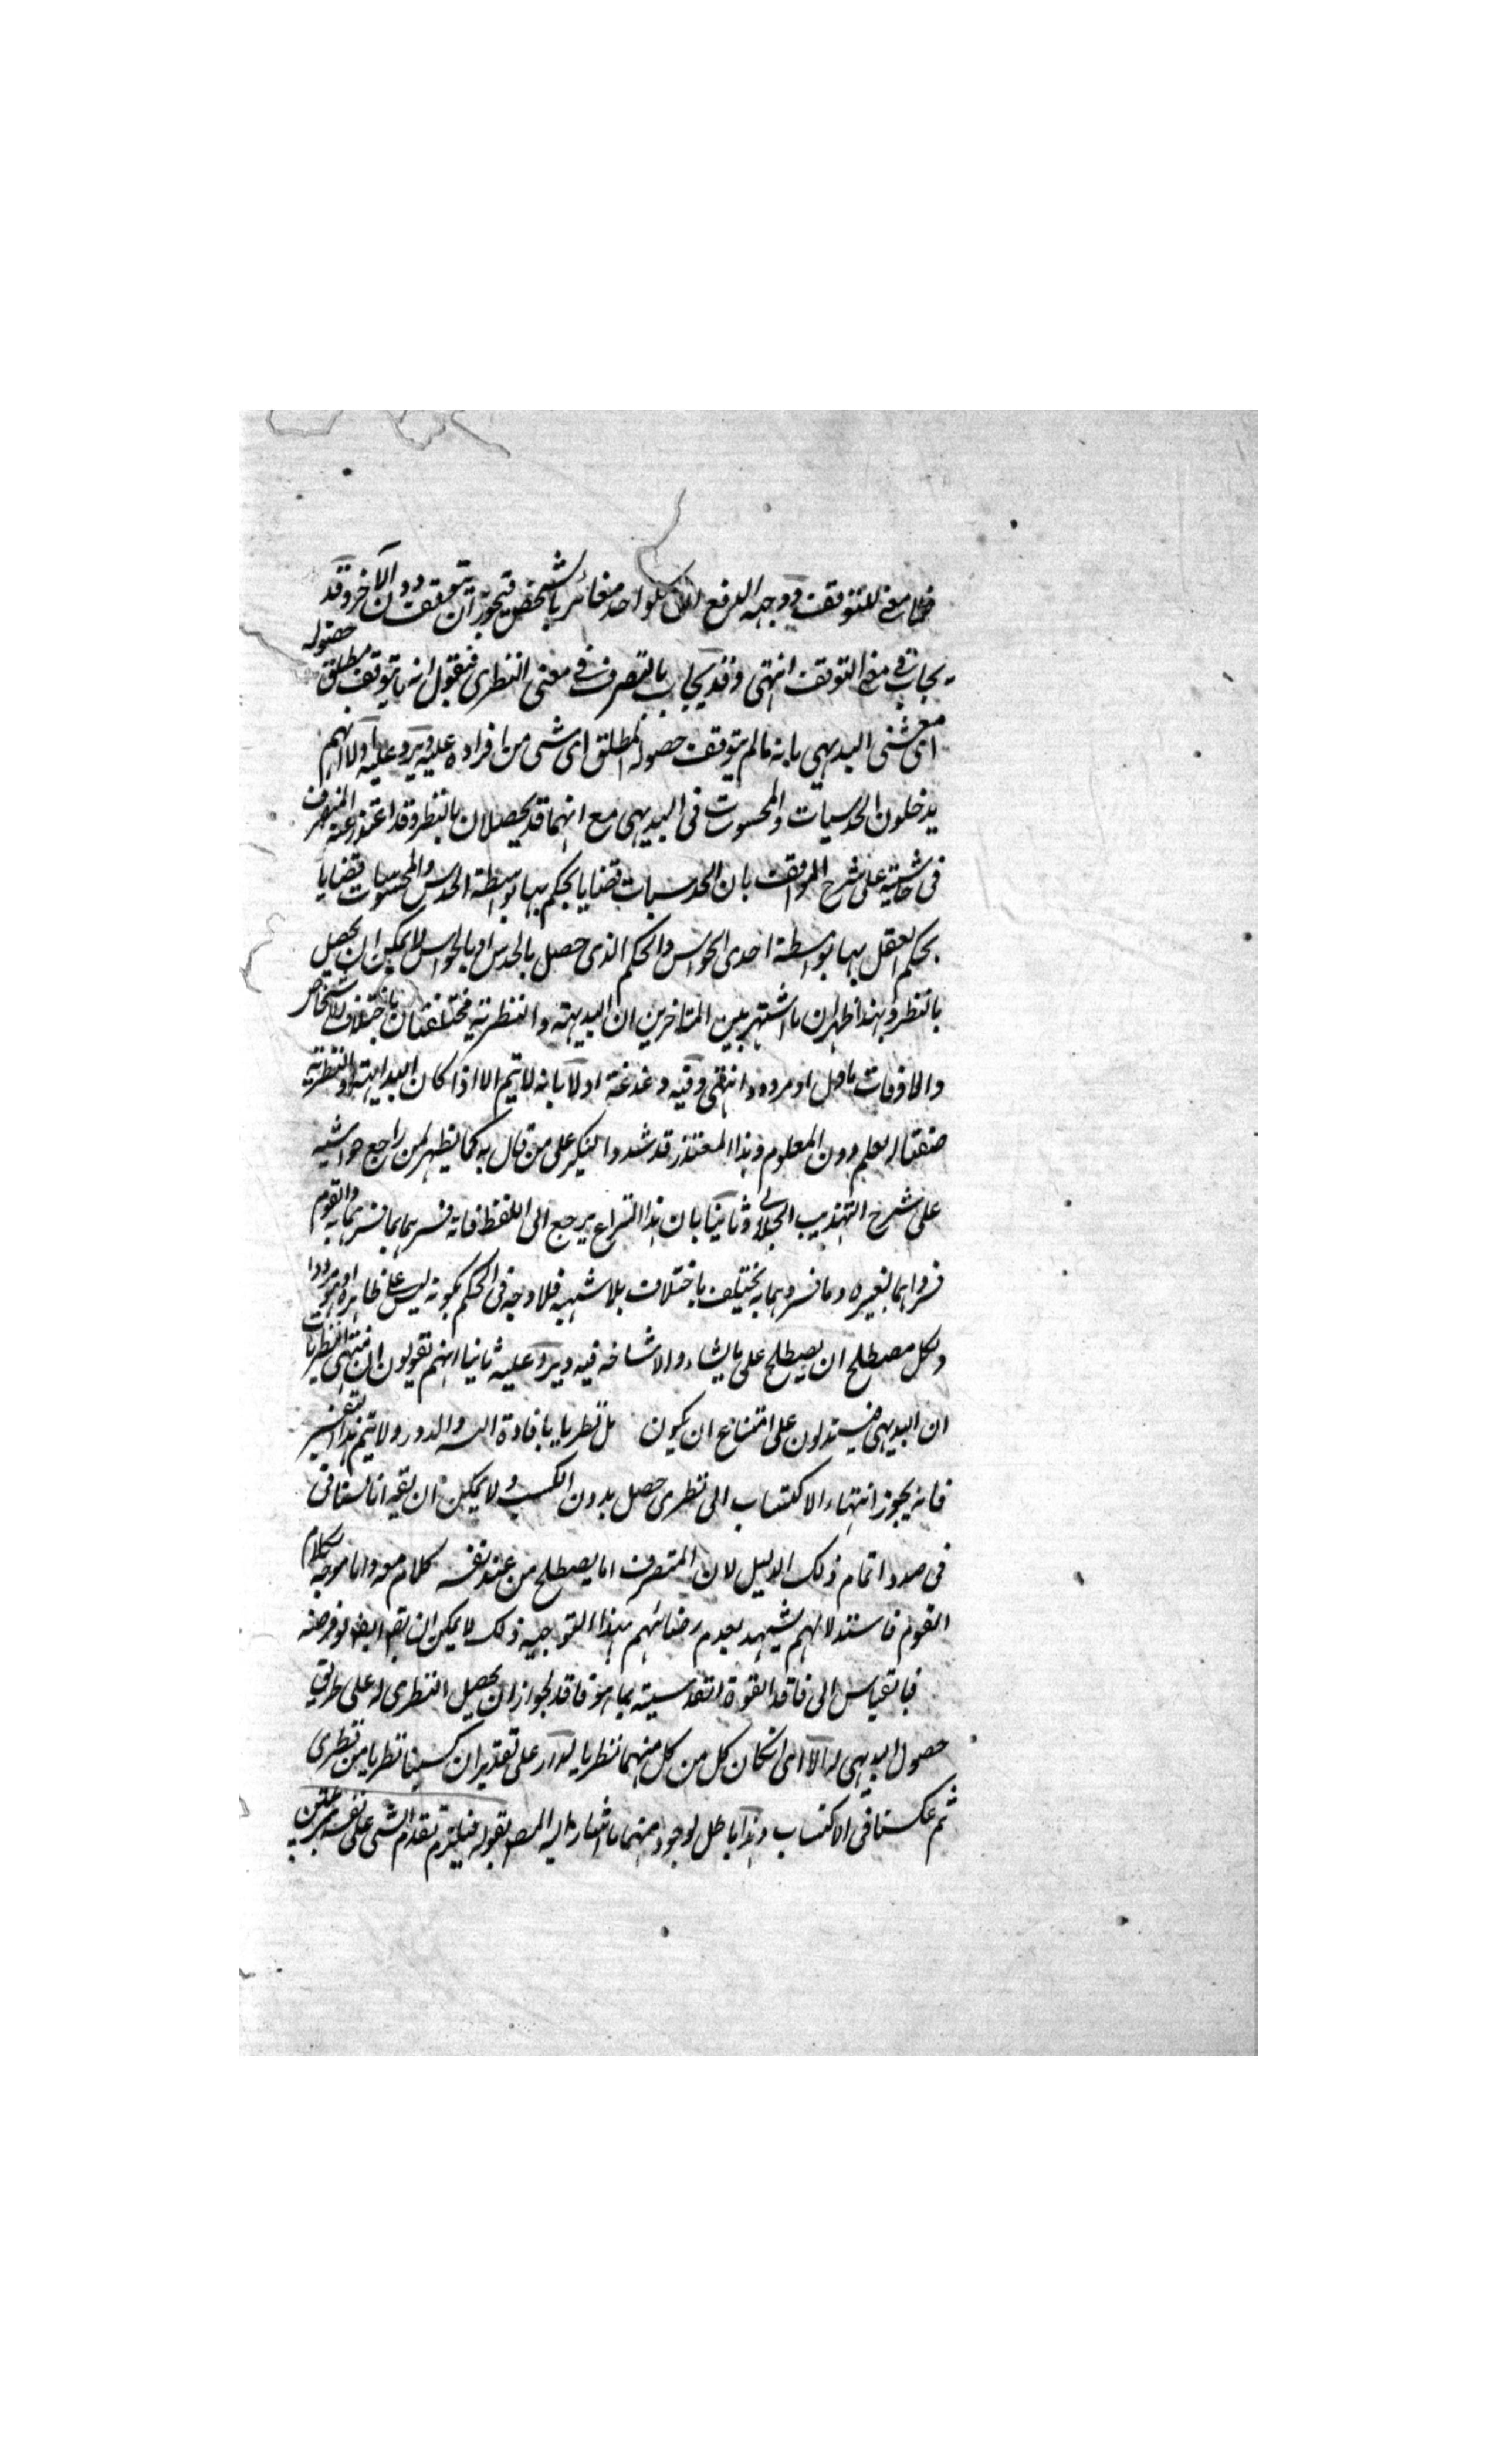 فما معنى للتوقف ووجه الدفع ان كلواحد مغائر بالشخص فيجوز ان يتحقق دون الآخر وقد
يجاب في معنى التوقف انتهى وقد يجاب بالتصرف في معنى النظرى فنقول انه ما يتوقف مطلق حصوله
اى شئ البديهي بانه مالم يتوقف حصوله المطلق اى شئ من افراده عليه ويرد عليه اولا انهم
يدخلون الحدسيات والمحسوسات فى البديهى مع انهما قد يحصلان بالنظر وقد اعتذر عنه المتصرف
فى حاشيته على شرح المواقف بان الحدسيات قضايا يحكم بها بواسطة الحدس والمحسوسات قضايا
يحكم العقل بها بواسطة احدى الحواس والحكم الذى حصل بالحدس او بالحواس لا يمكن ان يحصل
بالنظر وبهذا ظهر ان ما اشتهر بين المتاخرين ان البديهية والنظرية مختلفتان باختلاف الاشخاص
والاوقات ماول او مردود انتهى وفيه دغدغة اولا بانه لا يتم الا اذا كان البداهة والنظرية
صفتا لعلم دون المعلوم وهذا المعتذر قد شدد النكير على من قال به كما يظهر لمن راجع حواشيه
على شرح التهذيب الجلالى وثانيا بان هذا النزاع يرجع الى اللفظ فانه فسرهما بما فسرهما به والقوم
فسروا هما بغيره وما فسروهما به يختلف باختلاف بلا شبهة فلا وجه فى الحكم بكونه ليس على ظاهره او مردودا
ولكل مصطلح ان يصطلح على ما يشاء ولا مشاحة فيه ويرد عليه ثانيا انهم يقولون ان منتهى النظريات
ان البديهى فيستدلون على امتناع ان يكون كل نظريا بافادة التس والدور ولا يتم هذا التفسير
فانه يجوز انتهاء الاكتساب الى نظرى حصل بدون الكسب ولا يمكن ان يقال انا لسنا فى
فى صدد اتمام ذلك الدليل لان المتصرف اما يصطلح من عند نفسه كلام معه واما موجه لكلام
القوم فاستدلالهم يشهد بعدم رضائهم بهذا التوجيه ذلك لا يمكن ان يقال ايضا لو فرضنه
فبالقياس الى فاقد القوة القدسية بما هو فاقد لجواز ان يحصل النظرى له على طريق
حصول البديهى له الا اى لو كان كل من كل منهما نظريا لدار على تقدير ان كسبنا نظريا من نظرى
ثم عكسنا فى الاكتساب وهذا باطل لوجوه منها ما اشار اليه المصـ بقوله فيلزم تقدم الشئ على نفسه بمرتبتين